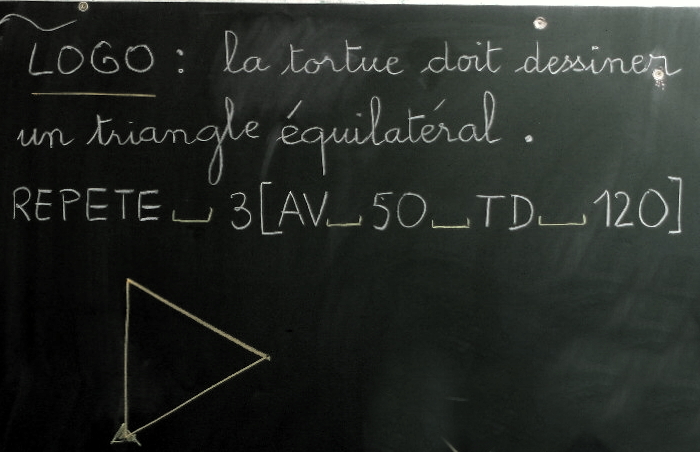 LOGO : la tortue doit dessiner
un triangle équilatéral .
REPETE ⎵ 3[AV⎵50⎵TD⎵120]